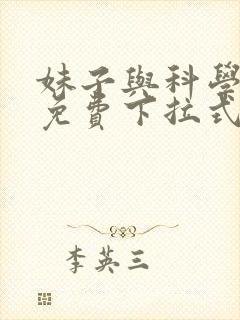 妹子與科學
免費下拉式
李英三